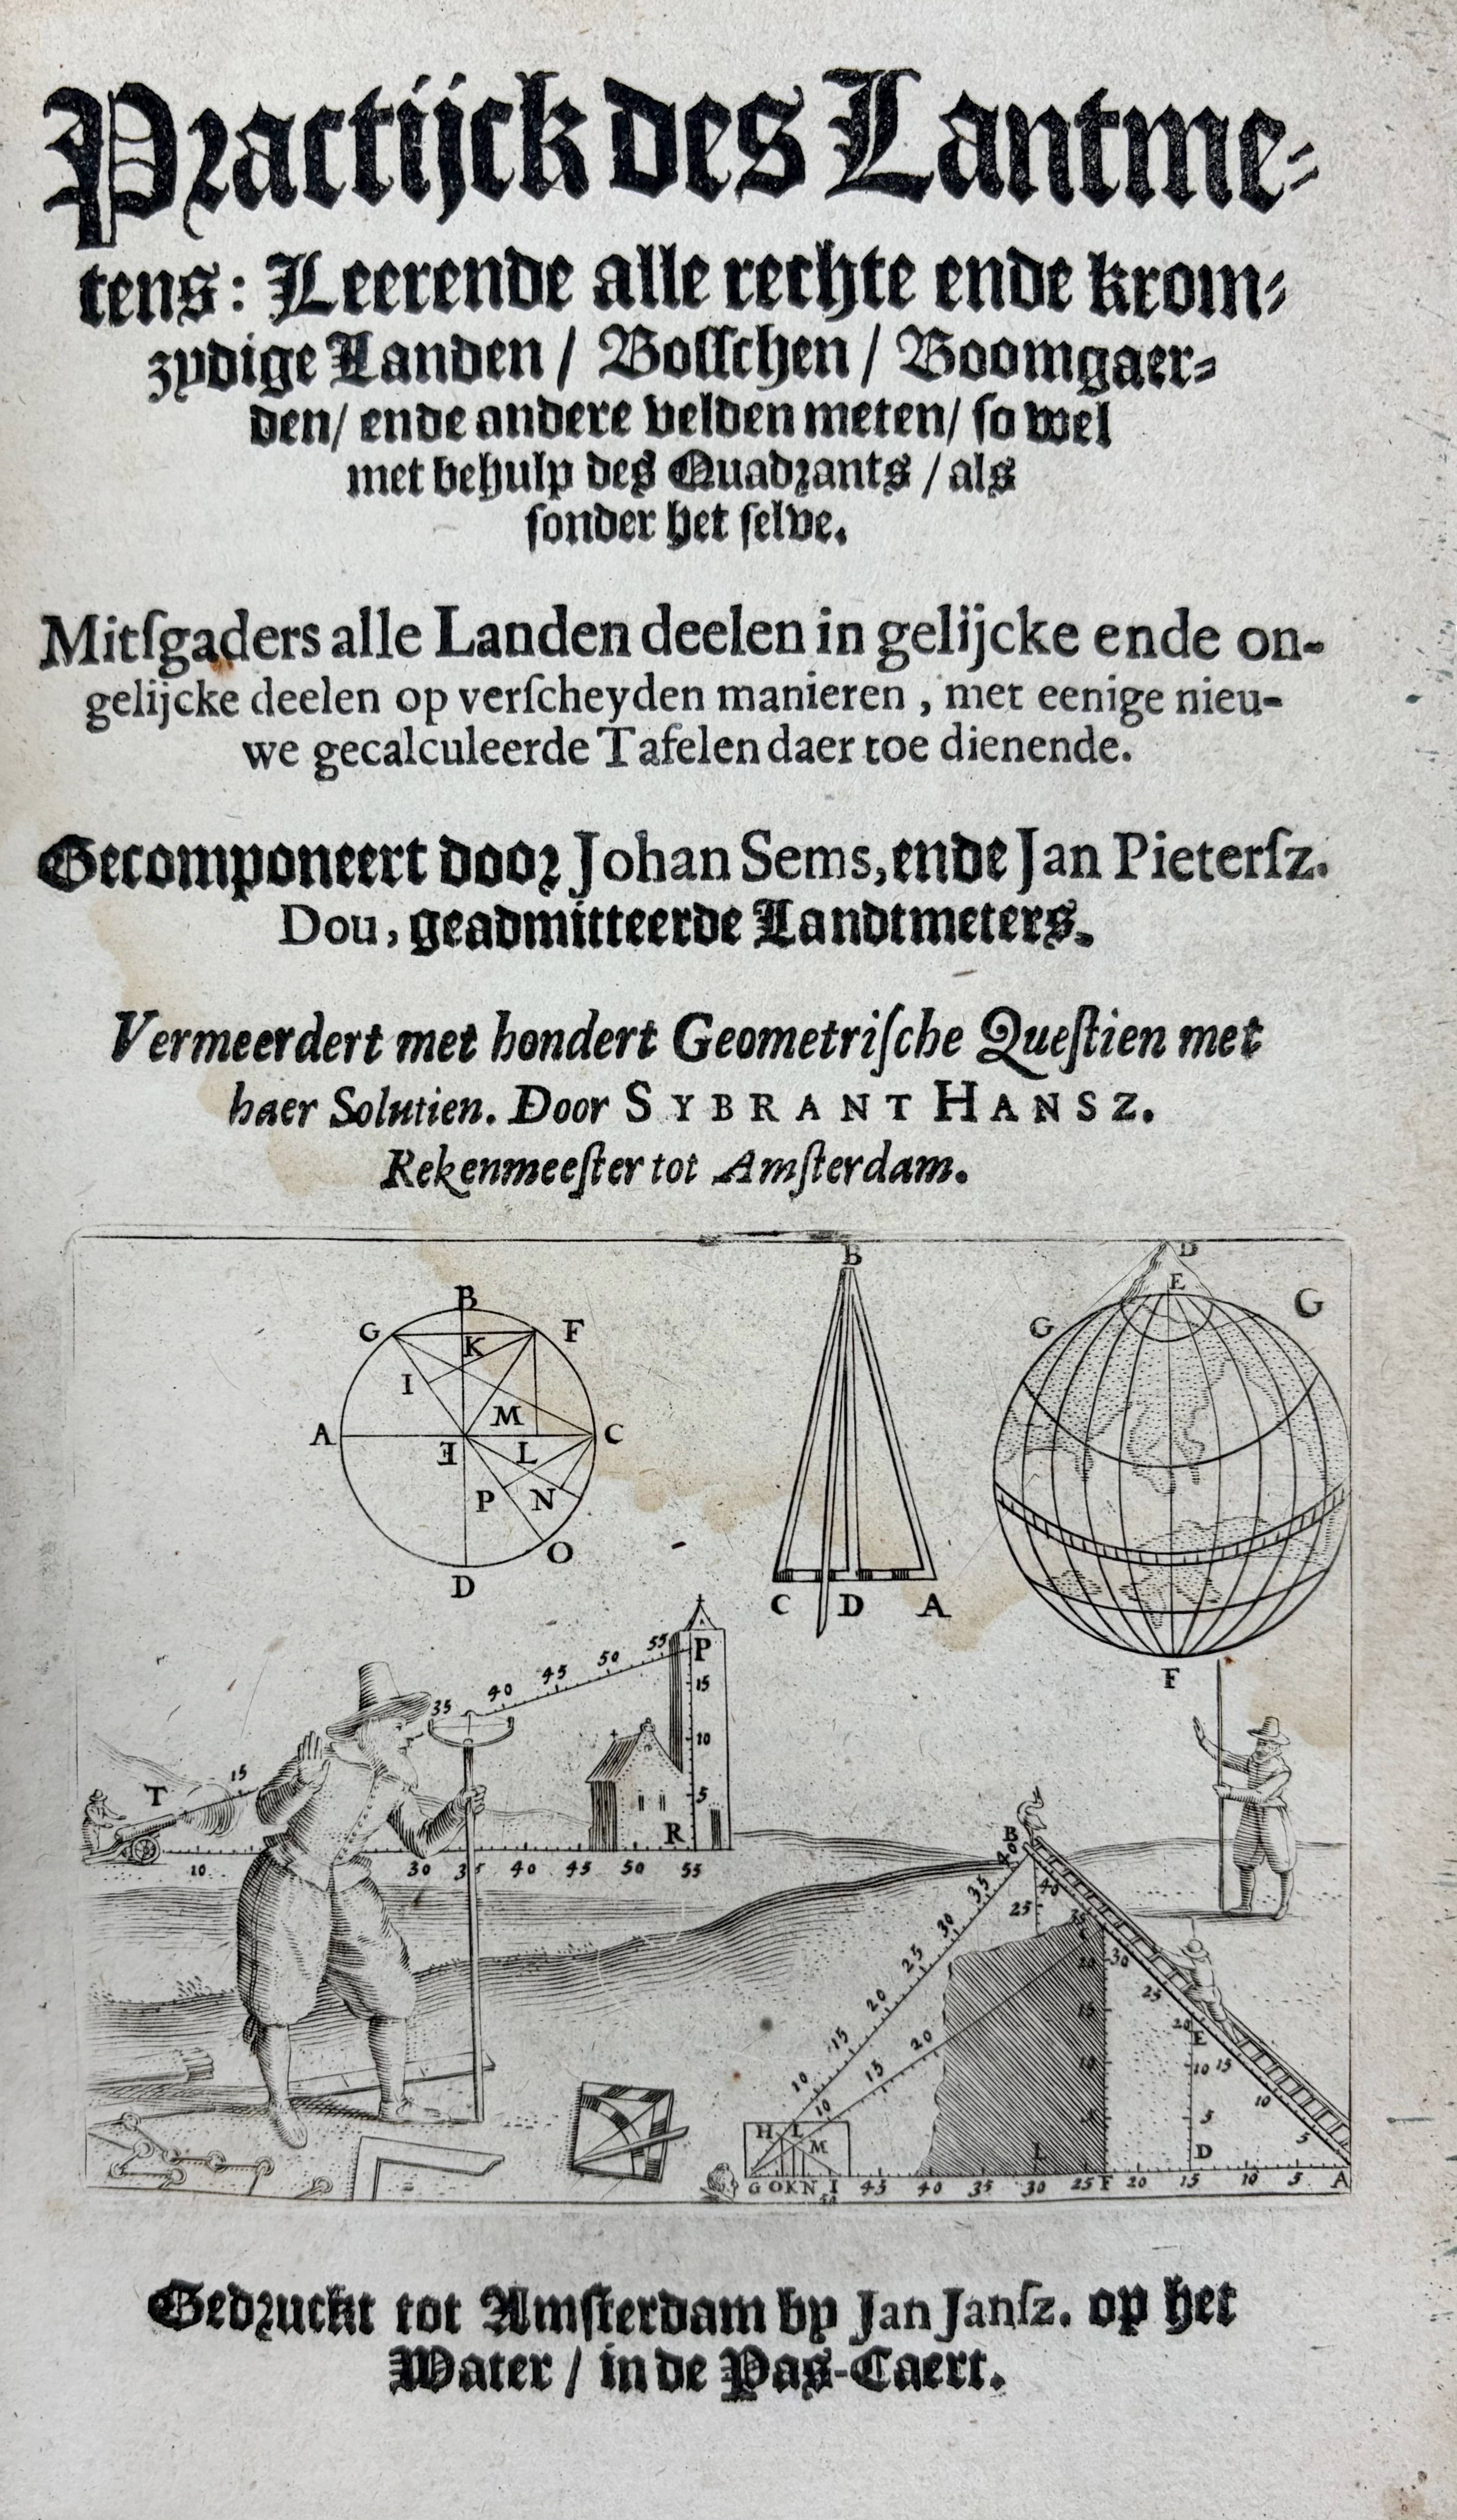 Practijck des Lantme-
tens: Leerende alle rechte ende krom-
zydige Landen / Bosschen / Boomgaer-
den / ende andere velden meten / so wel
met behulp des Quadrants / als
sonder het selve.
Mitſgaders alle Landen deelen in gelijcke ende on-
gelijcke deelen op verſcheyden manieren, met eenige nieu-
we gecalculeerde Tafelen daer toe dienende.
Gecomponeert door Johan Sems, ende Jan Pieterſz.
Dou, geadmitteerde Landtmeters.
Vermeerdert met hondert Geometriſche Queſtien met
haer Solutien. Door SYBRANT HANSZ.
Rekenmeeſter tot Amſterdam.
B
G F
K
I
M
A E L C
P N
O
D
B
C D A
D
E
G G
F
35 40 45 50 55 P
15
10
5
R
T 15
10 30 35 40 45 50 55
B
40
35
30
25
20
15
10
25
40
35
30
25
20
E
15
10
5
20
15
10
10
5
D
H L
M
L
G O K N I 45 40 35 30 25 F 20 15 10 5 A
Gedruckt tot Amsterdam by Jan Janſz. op het
Water / in de Pas-Caert.